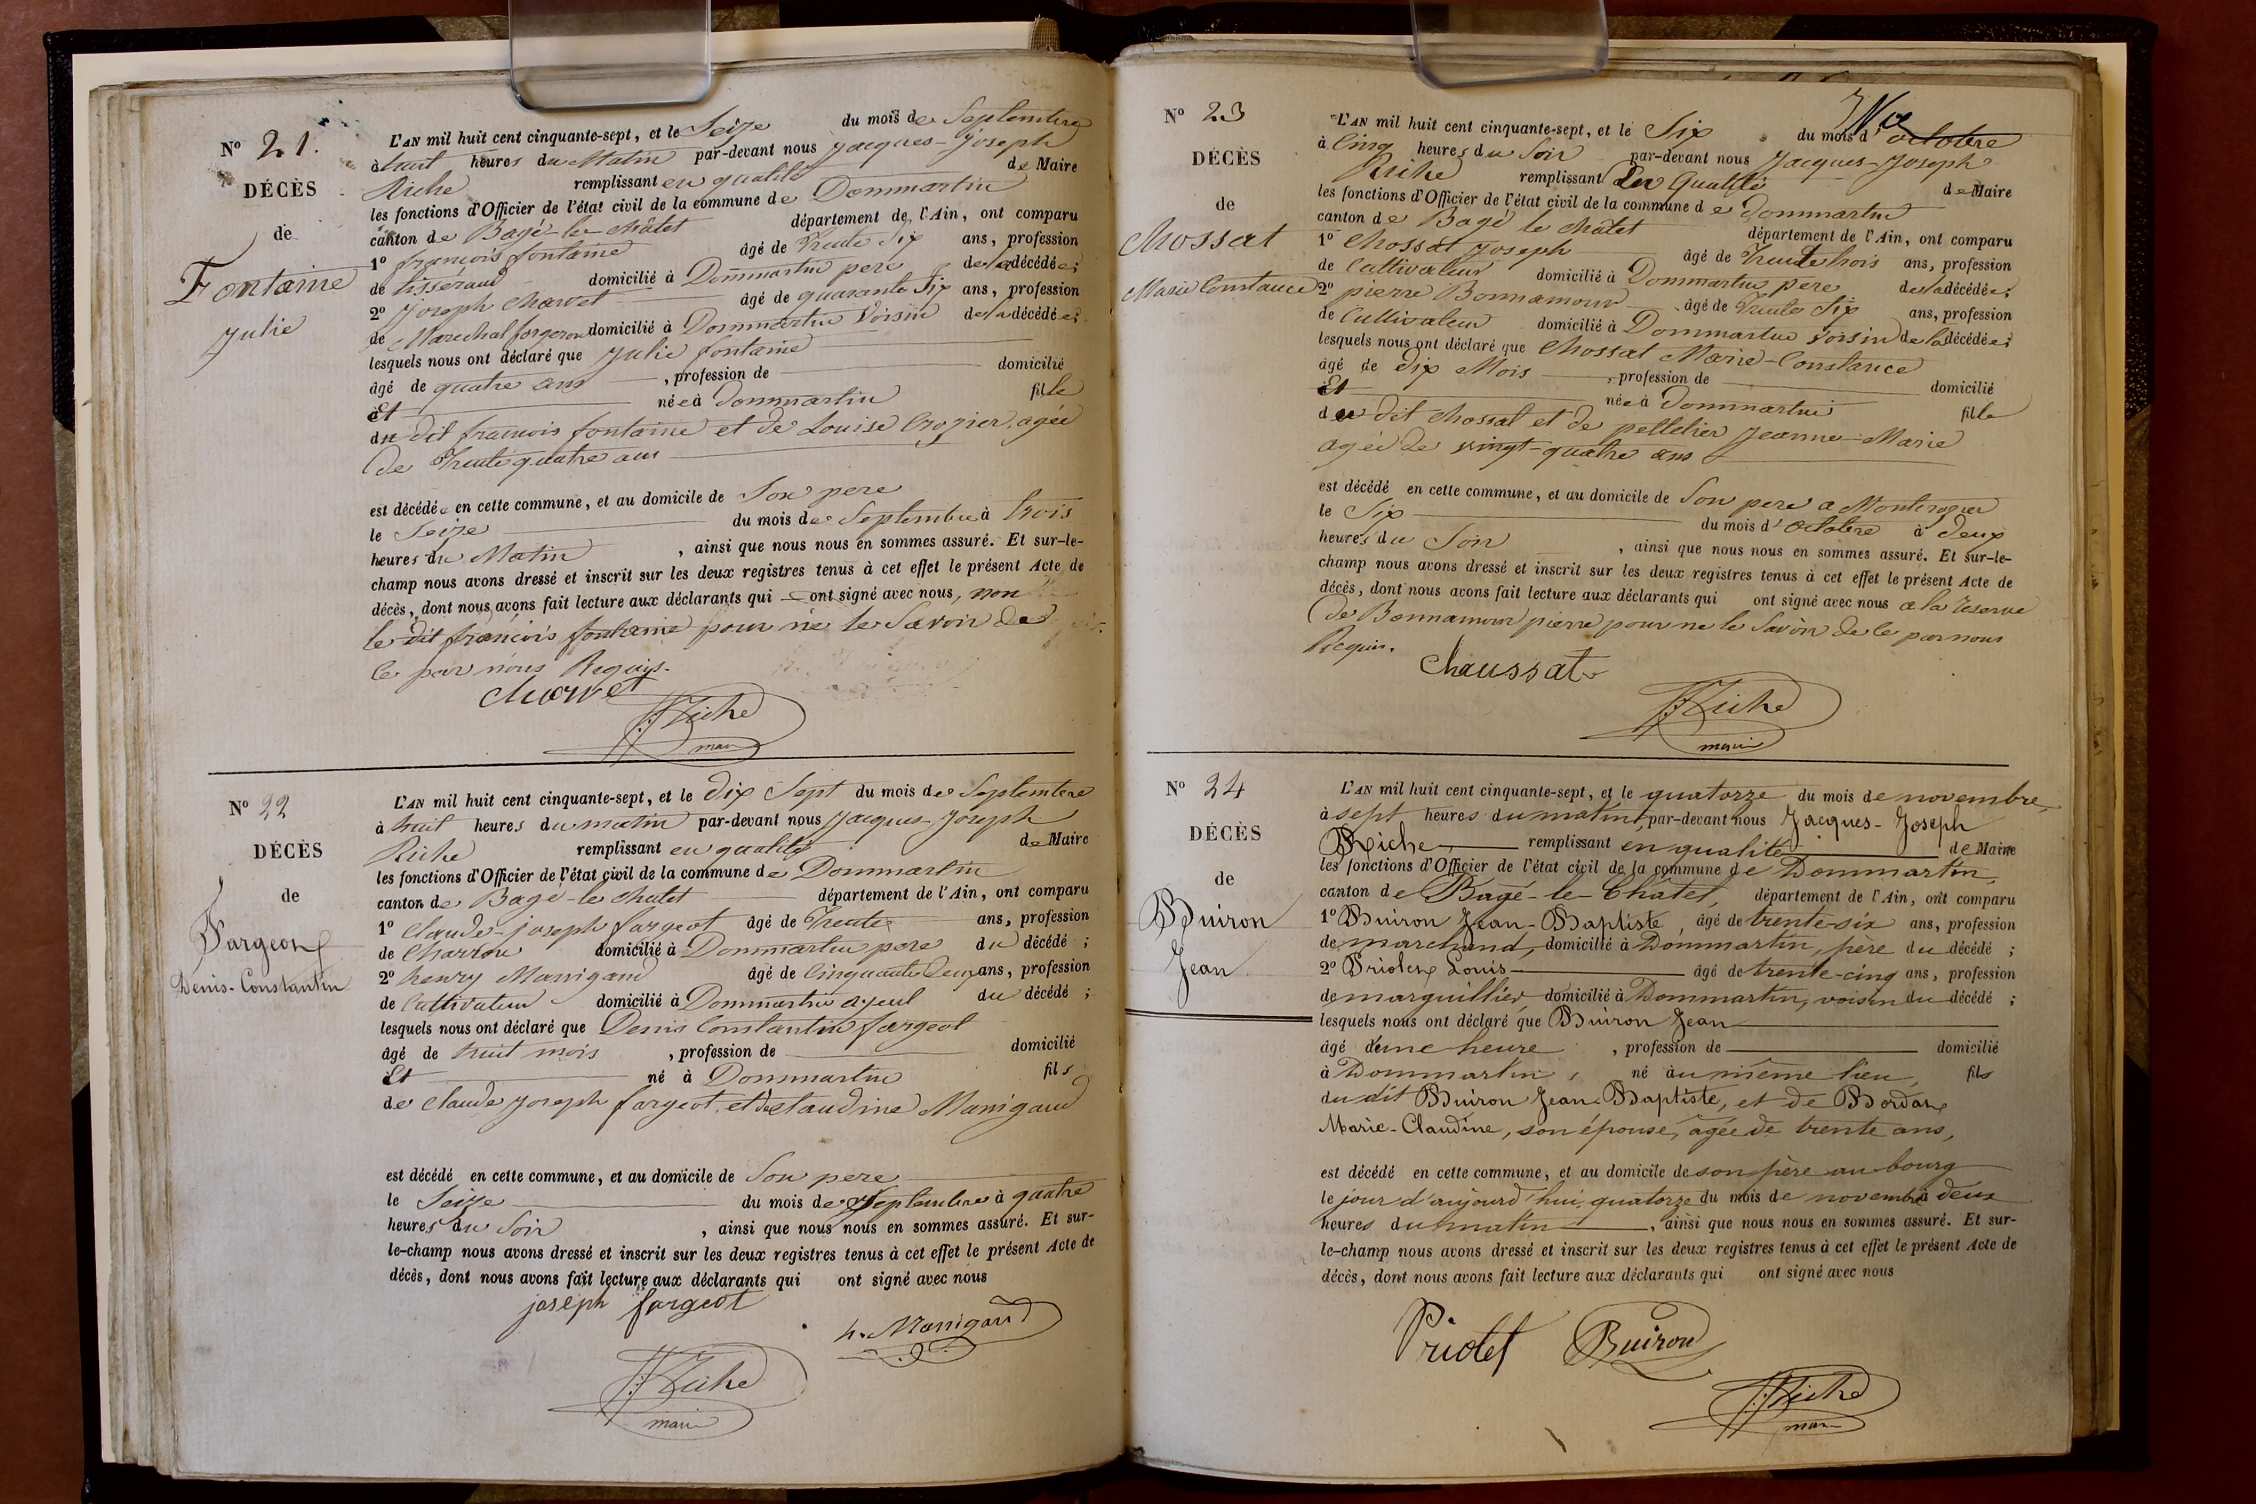 N° 21.
DÉCÈS
de
Fontaine
Julie
L'AN mil huit cent cinquante-sept, et le Seize du mois de Septembre
à huit heures du Matin par-devant nous Jacques-Joseph
Riche remplissant en qualité de Maire
les fonctions d'Officier de l'état civil de la commune de Dommartin
canton de Bagé-le-châtel département de l'Ain, ont comparu
1° francois fontaine âgé de Trente Six ans, profession
de tisserand domicilié à Dommartin pere de la décédée;
2° Joseph Charvet âgé de quarante Six ans, profession
de Marechal forgeron domicilié à Dommartin Voisin de la décédée;
lesquels nous ont déclaré que Julie fontaine
âgé de quatre ans , profession de domicilié
Et née à Dommartin fille
du dit francois fontaine et de Louise Crozier, agée
de Trente quatre ans
est décédée en cette commune, et au domicile de Son pere
le Seize du mois de Septembre à trois
heures du Matin , ainsi que nous nous en sommes assuré. Et sur-le-
champ nous avons dressé et inscrit sur les deux registres tenus à cet effet le présent Acte de
décès, dont nous avons fait lecture aux déclarants qui ont signé avec nous, non
le dit francois fontaine pour ne le Savoir de
ce par nous Requis.
charvet
JJ Riche
maire
N° 22
DÉCÈS
de
Fargeot
Denis-Constantin
L'AN mil huit cent cinquante-sept, et le dix Sept du mois de Septembre
à huit heures du matin par-devant nous Jacques-Joseph
Riche remplissant en qualité de Maire
les fonctions d'Officier de l'état civil de la commune de Dommartin
canton de Bagé-le-chatel département de l'Ain, ont comparu
1° Claude-joseph fargeot âgé de Trente ans, profession
de Charron domicilié à Dommartin pere du décédé ;
2° henry Manigand âgé de Cinquante Deux ans, profession
de Cultivateur domicilié à Dommartin ayeul du décédé ;
lesquels nous ont déclaré que Denis Constantin fargeot
âgé de huit mois , profession de domicilié
Et né à Dommartin fils
de Claude Joseph fargeot, et de Claudine Manigand
est décédé en cette commune, et au domicile de Son pere
le Seize du mois de Septembre à quatre
heures du Soir , ainsi que nous nous en sommes assuré. Et sur-
le-champ nous avons dressé et inscrit sur les deux registres tenus à cet effet le présent Acte de
décès, dont nous avons fait lecture aux déclarants qui ont signé avec nous
joseph fargeot
h. Manigand
JJ Riche
maire
N° 23
DÉCÈS
de
Chossat
Marie Constance
L'AN mil huit cent cinquante-sept, et le Six du mois d'octobre
à Cinq heures du Soir par-devant nous Jacques-Joseph
Riche remplissant En Qualité de Maire
les fonctions d'Officier de l'état civil de la commune de Dommartin
canton de Bagé le châtel département de l'Ain, ont comparu
1° Chossat Joseph âgé de Trente trois ans, profession
de Cultivateur domicilié à Dommartin pere de la décédée;
2° pierre Bonnamour âgé de Trente Six ans, profession
de Cultivateur domicilié à Dommartin Voisin de la décédée;
lesquels nous ont déclaré que Chossat Marie-Constance
âgé de dix Mois , profession de domicilié
Et née à Dommartin fille
du dit Chossat et de pelletier Jeanne-Marie
agée de vingt-quatre ans
est décédé en cette commune, et au domicile de Son pere a Montcrozier
le Six du mois d'octobre à deux
heures du Soir , ainsi que nous nous en sommes assuré. Et sur-le-
champ nous avons dressé et inscrit sur les deux registres tenus à cet effet le présent Acte de
décès, dont nous avons fait lecture aux déclarants qui ont signé avec nous a la reserve
de Bonnamour pierre pour ne le Savoir de ce par nous
Requis.
Chaussat
JJ Riche
maire
N° 24
DÉCÈS
de
Buiron
Jean
L'AN mil huit cent cinquante-sept, et le quatorze du mois de novembre,
à sept heures du matin, par-devant nous Jacques-Joseph
Riche, remplissant en qualité de Maire
les fonctions d'Officier de l'état civil de la commune de Dommartin,
canton de Bagé-le-Châtel, département de l'Ain, ont comparu
1° Buiron Jean-Baptiste, âgé de trente-six ans, profession
de marchand, domicilié à Dommartin, père du décédé ;
2° Priolet Louis âgé de trente-cinq ans, profession
de marguillier domicilié à Dommartin, voisin du décédé ;
lesquels nous ont déclaré que Buiron Jean
âgé d'une heure , profession de domicilié
à Dommartin, né au même lieu, fils
du dit Buiron Jean-Baptiste, et de Bordat
Marie-Claudine, son épouse, agée de trente ans,
est décédé en cette commune, et au domicile de son père au bourg
le jour d'aujourd'hui, quatorze du mois de novembre à deux
heures du matin , ainsi que nous nous en sommes assuré. Et sur-
le-champ nous avons dressé et inscrit sur les deux registres tenus à cet effet le présent Acte de
décès, dont nous avons fait lecture aux déclarants qui ont signé avec nous
Priolet Buiron
JJ Riche
maire